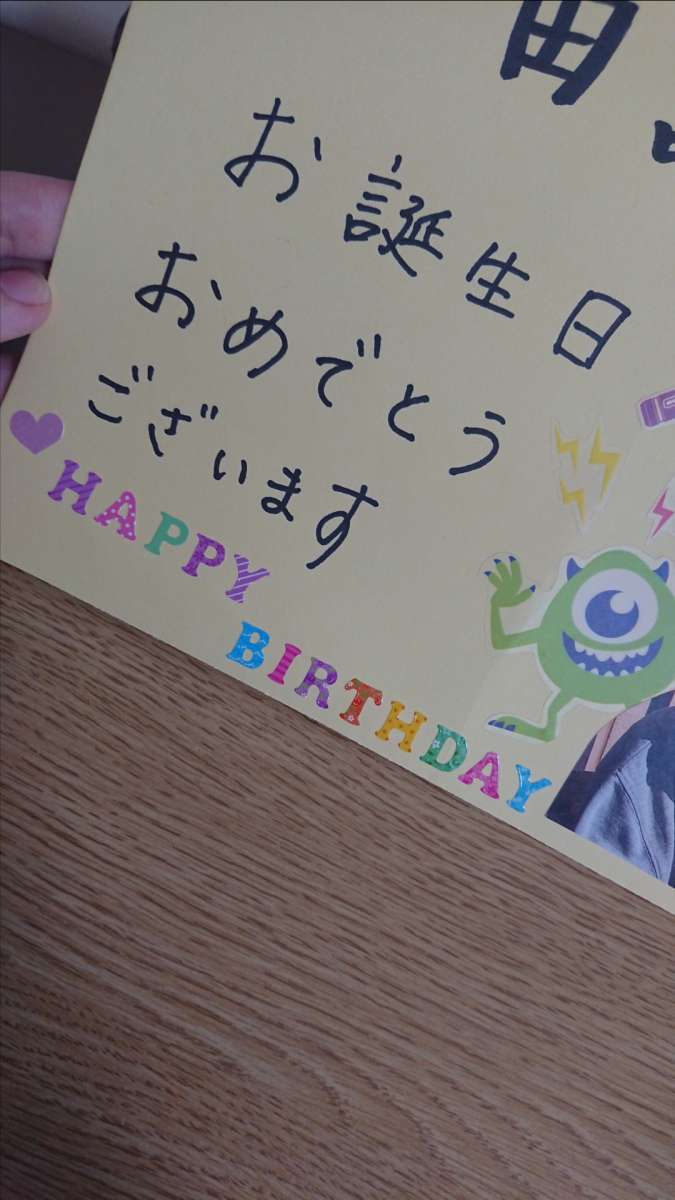 田
お誕生日
おめでとう
ございます
HAPPY
BIRTHDAY